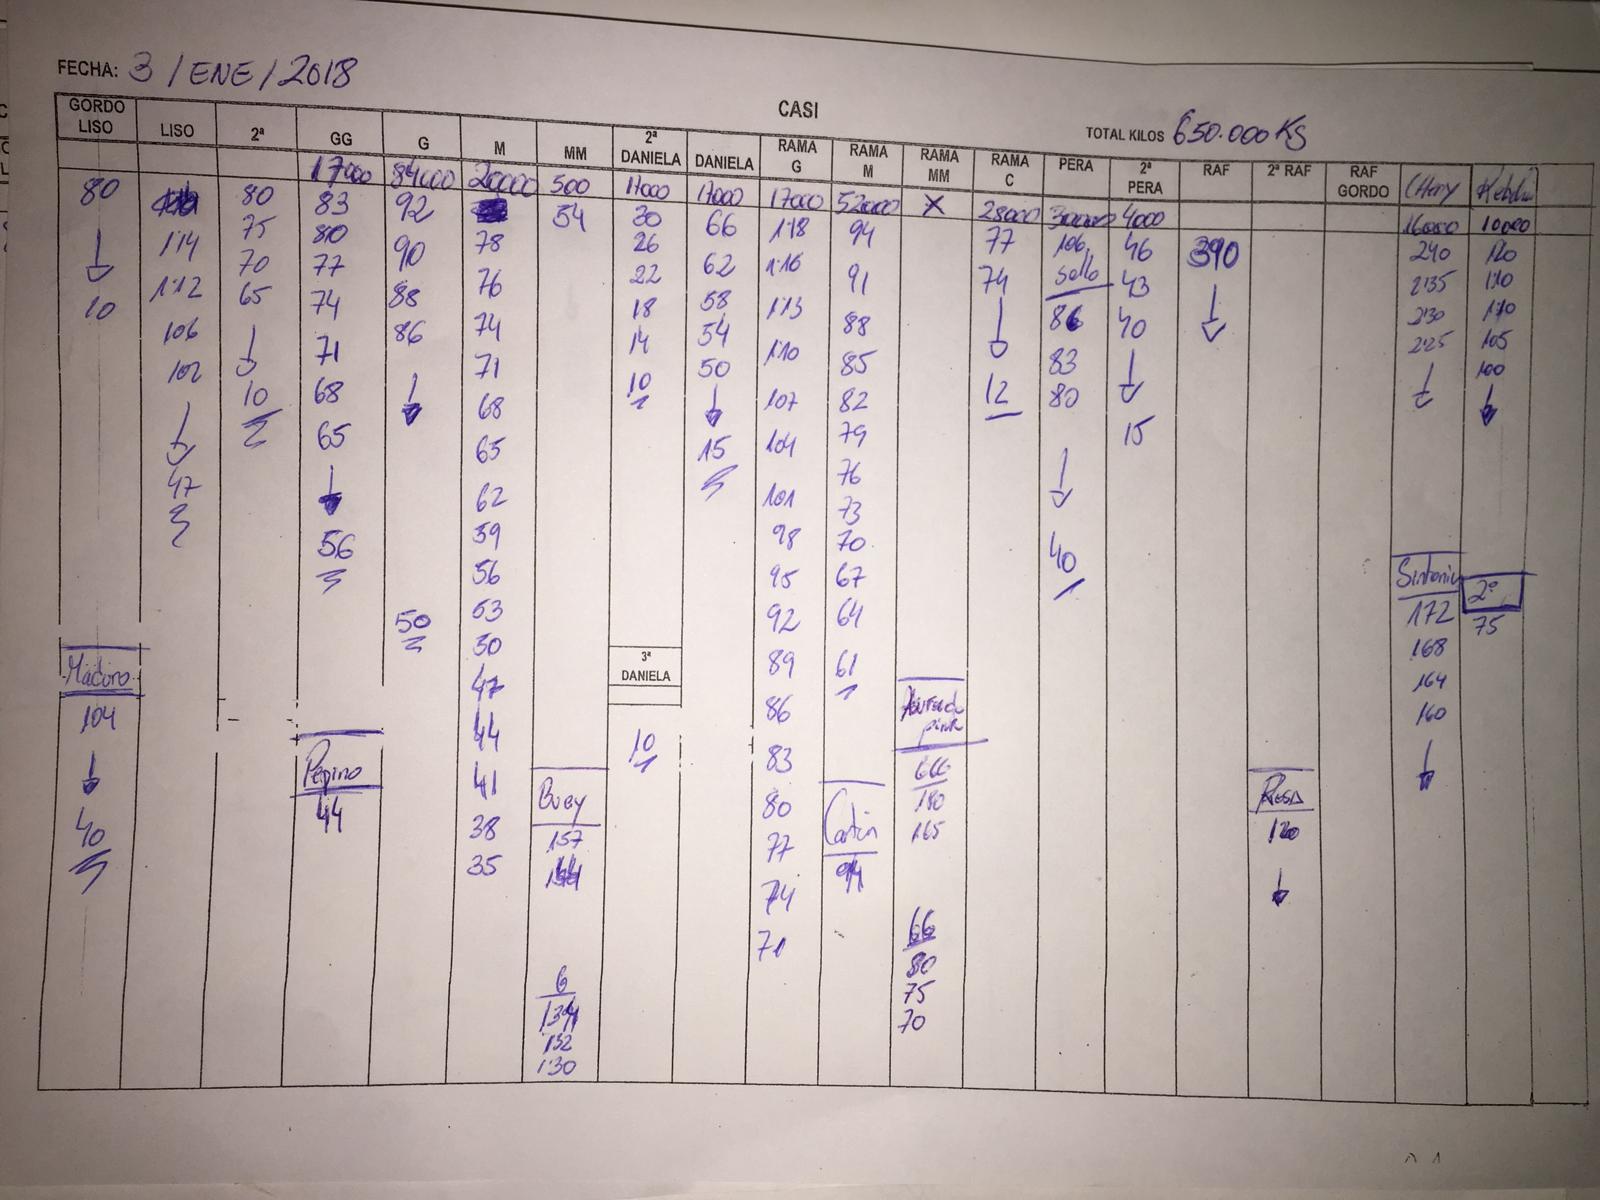 FECHA: 3 / ENE / 2018
CASI
TOTAL KILOS 650.000 KS
GORDO LISO
80
10
Maduro
104
40
LISO
114
112
106
102
47
2ª
80
75
70
65
10
GG
17000
83
80
77
74
71
68
65
56
Pepino
44
G
84000
92
90
88
86
50
M
20000
78
76
74
71
68
65
62
59
56
53
50
47
44
41
38
35
MM
500
54
Buey
157
G
134
132
130
2ª DANIELA
17000
30
26
22
18
14
10
3ª DANIELA
10
DANIELA
17000
66
62
58
54
50
15
RAMA G
17000
118
116
113
110
107
104
101
98
95
92
89
86
83
80
77
74
71
RAMA M
52000
94
91
88
85
82
79
76
73
70
67
64
61
94
RAMA MM
X
GGG
180
165
GG
80
75
70
RAMA C
28000
77
74
12
PERA
30000
106
Sello
86
83
80
40
2ª PERA
4000
46
43
40
15
RAF
390
2ª RAF
Rosa
120
RAF GORDO
CHerry
16000
240
235
230
225
172
168
164
160
10000
120
110
110
105
100
2ª
75